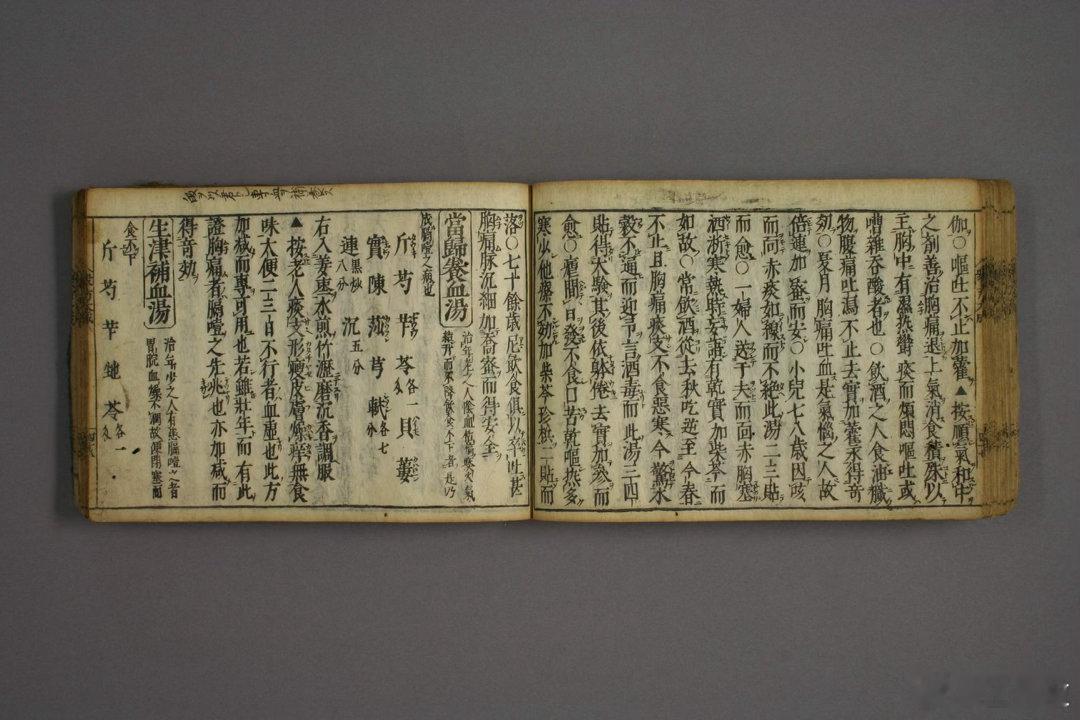 伽○嘔吐不止加藿▲按順氣和中
之劑善治胸痛退上氣消食積殊以
主胸中有濕熱欝痰而煩悶嘔吐或
嘈雜吞酸者也○飲酒之人食油膩
物腹痛吐瀉不止去實加藿汞得竒
刻○憂月胸痛吐血是氣惱之人故
倍連加而安○小兒七八歳因咳
而向赤痰如線而不絶此湯二三貼
而愈○一婦人送于夫而回赤胸塞
洒淅寒熱時妄語有乾實加柴苓而
如故○常飲酒從去秋吃逆至今春
不止且胸痛痰支不食惡寒今驚水
穀不通而迎予言酒毒而此湯三四
貼得大驗其後依躰倦去實加參而
愈○瘧間日發不食口苦乾嘔熱多
寒少他藥不効加柴苓珍棋二貼而
落○七十餘歳尼飲食俱以辛吐甚
胸痛脉沉細加喬而得安全
當歸養血湯
斤芍苄苓各一貝蔞
實陳蘓芎軾各七分
連黒炒八分沉五分
右入姜棗水煎竹瀝磨沉香調服
▲按老人痰支形痩皮膚燥痒無食
味大便二三日不行者血虚也此方
加減而專可用也若雖壯年而有此
證胸痛者膈噎之先兆也亦加減而
得竒効
生津補血湯
治年少之人有患膈噎之者
胃脘血燥不潤故便閉塞而
食不下
斤芍苄苓各一